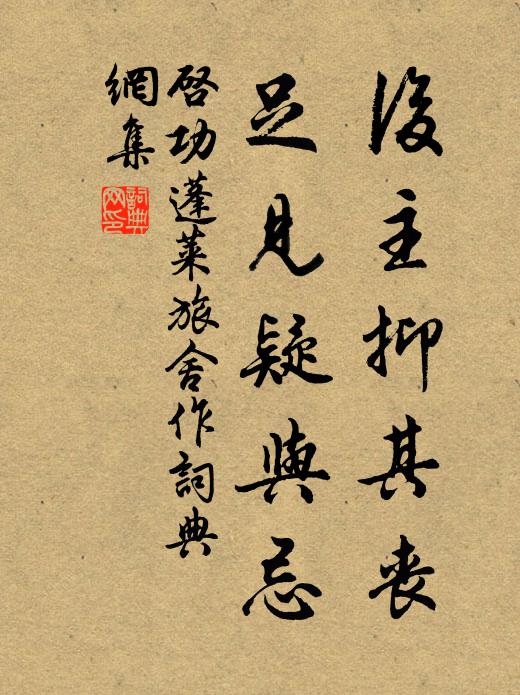 後主抑其喪
足見疑與忌
啓功蓬萊旅舍作詞典
網集
詞典
網印